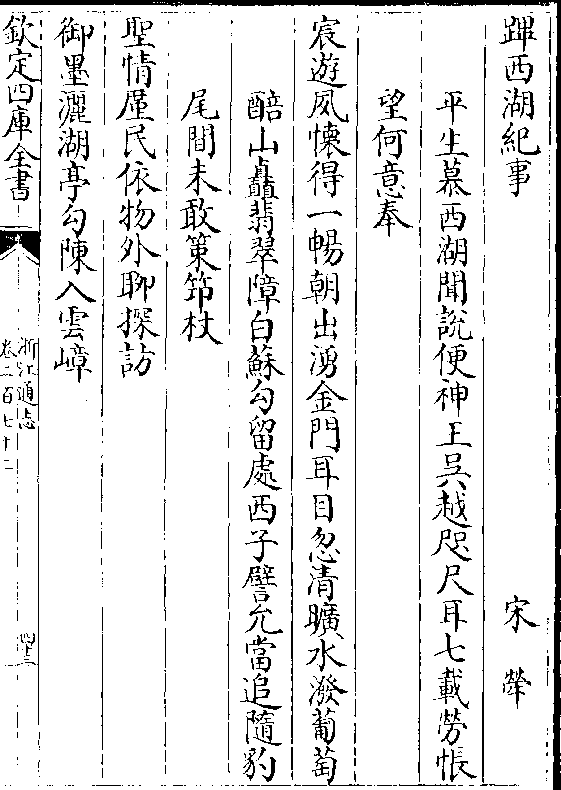 蹕西湖紀事　宋犖
平生慕西湖聞說便神王吳越咫尺耳七載勞悵
望何意奉
宸遊夙懷得一暢朝出湧金門耳目忽清曠水潑葡萄
醅山矗翡翠障白蘇勾留處西子譬允當追隨豹
尾間未敢策笻杖
聖情厪民依物外聊探訪
御墨灑湖亭勾陳入雲嶂
欽定四庫全書
浙江通志
卷二百七十二
四十三